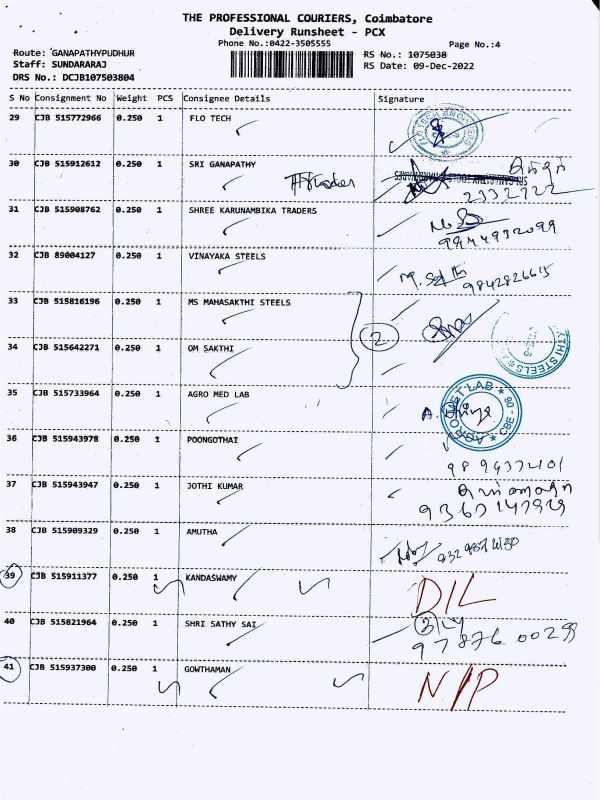 THE PROFESSIONAL COURIERS, Coimbatore
Delivery Runsheet - PCX
Phone No.:0422-3505555
Page No.:4
Route: GANAPATHYPUDHUR
RS No.: 1075030
Staff: SUNDARARAJ
RS Date: 09-Dec-2022
DRS No.: DCJB107503804
S No Consignment No Weight PCS Consignee Details Signature
29 CJB 515772966 0.250 1 FLO TECH
30 CJB 515912612 0.250 1 SRI GANAPATHY
2332722
31 CJB 515908762 0.250 1 SHREE KARUNAMBIKA TRADERS
9944932099
32 CJB 89004127 0.250 1 VINAYAKA STEELS
9842826615
33 CJB 515816196 0.250 1 MS MAHASAKTHI STEELS
2
34 CJB 515642271 0.250 1 OM SAKTHI
35 CJB 515733964 0.250 1 AGRO MED LAB
CBE - 06
36 CJB 515943978 0.250 1 POONGOTHAI
37 CJB 515943947 0.250 1 JOTHI KUMAR
38 CJB 515909329 0.250 1 AMUTHA
39 CJB 515911377 0.250 1 KANDASWAMY D/L
40 CJB 515821964 0.250 1 SHRI SATHY SAI
97876 00299
41 CJB 515937300 0.250 1 GOWTHAMAN N/P